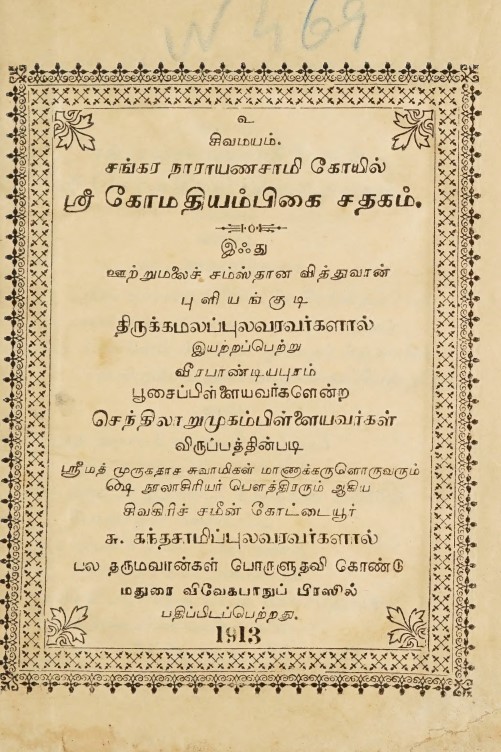 W 469
உ
சிவமயம்.
சங்கர நாராயணசாமி கோயில்
ஸ்ரீ கோமதியம்பிகை சதகம்.
இஃது
ஊற்றுமலைச் சம்ஸ்தான வித்துவான்
புளியங்குடி
திருக்கமலப்புலவரவர்களால்
இயற்றப்பெற்று
வீரபாண்டியபுரம்
பூசைப்பிள்ளையவர்களென்ற
செந்திலாறுமுகம்பிள்ளையவர்கள்
விருப்பத்தின்படி
ஸ்ரீமத் முருகதாச சுவாமிகள் மாணாக்கருளொருவரும்
௸ நூலாசிரியர் பௌத்திரரும் ஆகிய
சிவகிரிச் சமீன் கோட்டையூர்
சு. கந்தசாமிப்புலவரவர்களால்
பல தருமவான்கள் பொருளுதவி கொண்டு
மதுரை விவேகபாநுப் பிரஸில்
பதிப்பிடப்பெற்றது.
1913